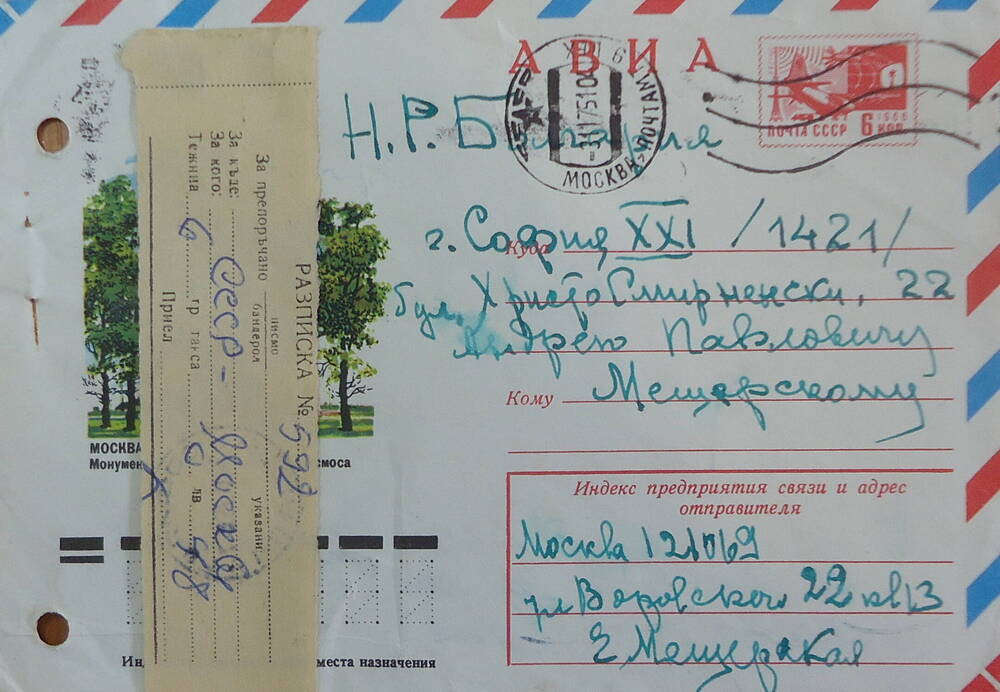 АВИА
ПОЧТА СССР 6 КОП.
1966
МОСКВА ПОЧТАМТ
Н.Р. Болгария
Куда
г. София XXI /1421/
бул. Христо Смирненски, 22
Андрею Павловичу
Кому
Мещерскому
Индекс предприятия связи и адрес
отправителя
Москва 121069
ул Воровского 22 кв 13
Е Мещерская
МОСКВА
Монумен
смоса
Ин
места назначения
РАЗПИСКА № 592
За препоръчано писмо бандерол
указани
За къде: СССР - Москва
За кого:
Тежина 6 гр такса 0 лв 48
Приел